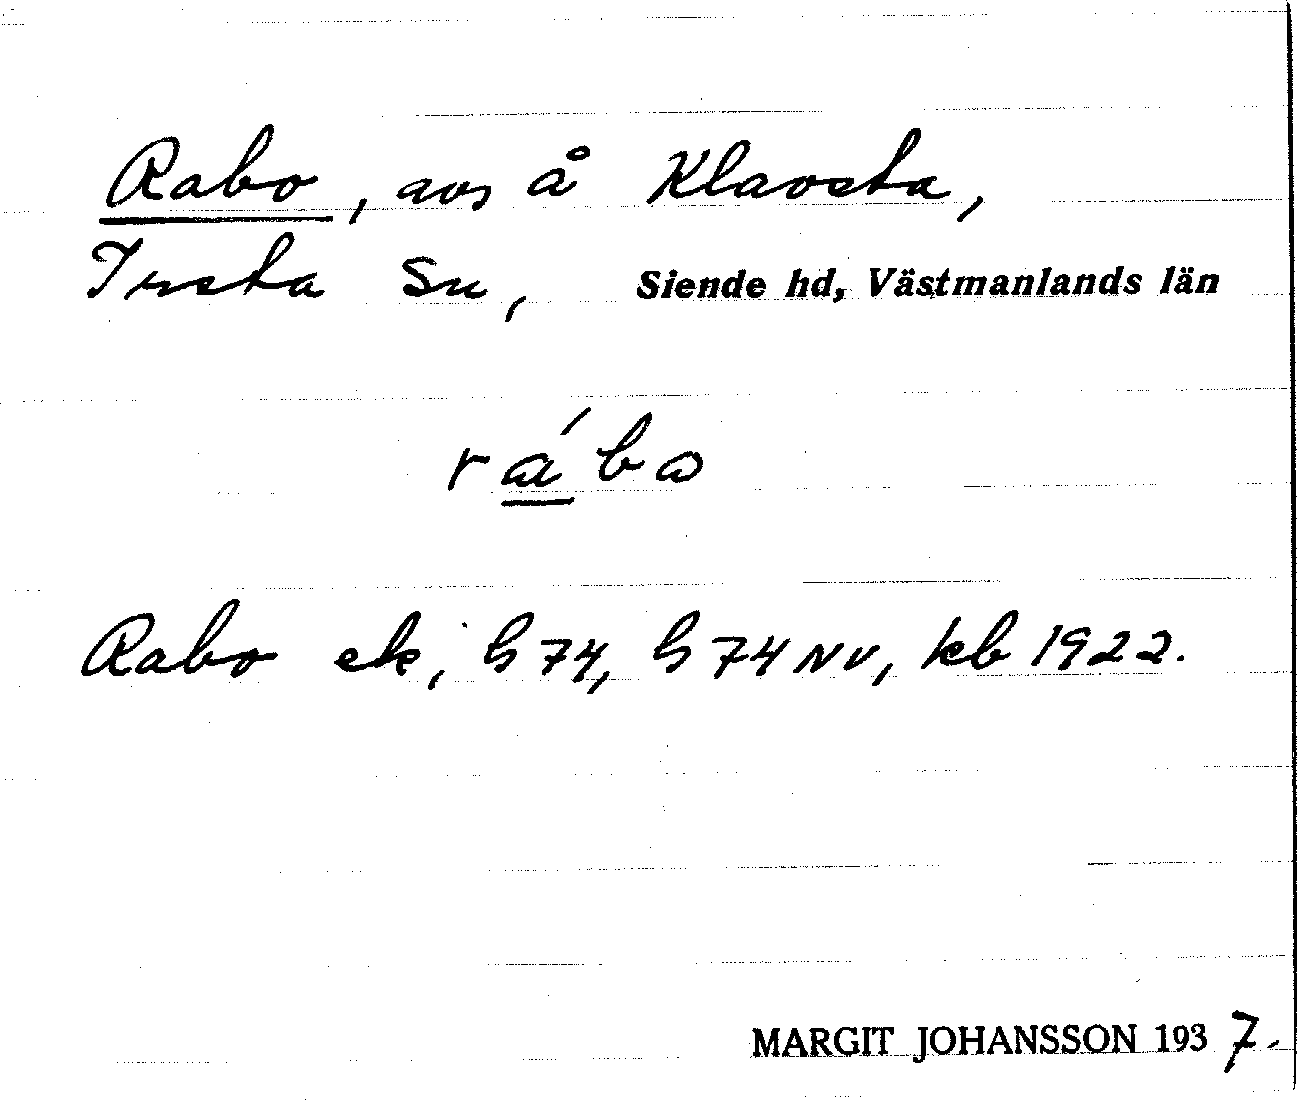 Rabo, avs å Klavsta,
Irsta sn, Siende hd, Västmanlands län
rábω
Rabo ek, h 74, h 74 NV, kb 1922.
MARGIT JOHANSSON 1937.